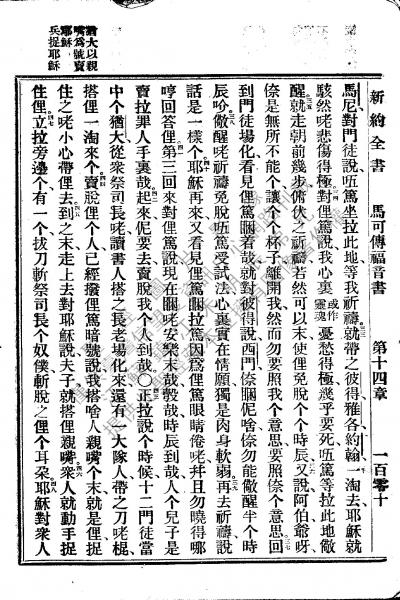 新約全書 馬可傳福音書 第十四章 一百零十
馬尼對門徒說㑚篤坐拉此地等我祈禱就帶之彼得雅各約翰一淘去耶穌就
駭然咾悲傷得極對俚篤說我心裏或作靈魂憂愁得極幾乎要死㑚篤等拉此地儆
醒就走朝前幾步俯伏之祈禱若然可以末使俚免脫个个時辰又說阿伯爺呀
倷是無所不能个讓个个杯子離開我然而勿要照我个意思要照倷个意思回
到門徒場化看見俚篤瞓着哉就對彼得說西門倷瞓呢啥倷勿能儆醒半个時
辰吤儆醒咾祈禱免脫㑚篤受試法心裏實在情願獨是肉身軟弱再去祈禱說
話是一樣个耶穌再來又看見俚篤瞓拉篤因爲俚篤眼睛倦咾幷且勿曉得哪
哼回答俚第三回來對俚篤說現在瞓咾安樂末哉彀哉時辰到哉人个兒子是
賣拉罪人手裏哉起來伲要去賣脫我个人到哉○正拉說个時候十二門徒當
中个猶大從衆祭司長咾讀書人搭之長老場化來還有一大隊人帶之刀咾棍
搭俚一淘來个賣脫俚个人已經撥俚篤暗號說我搭啥人親嘴个末就是俚捉
住之咾小心帶俚去到之末走上去對耶穌說夫子就搭俚親嘴衆人就動手捉
住俚立拉旁邊个有一个拔刀斬祭司長个奴僕斬脫之俚个耳朶耶穌對衆人
猶大以親
嘴爲號賣
耶穌
兵捉耶穌